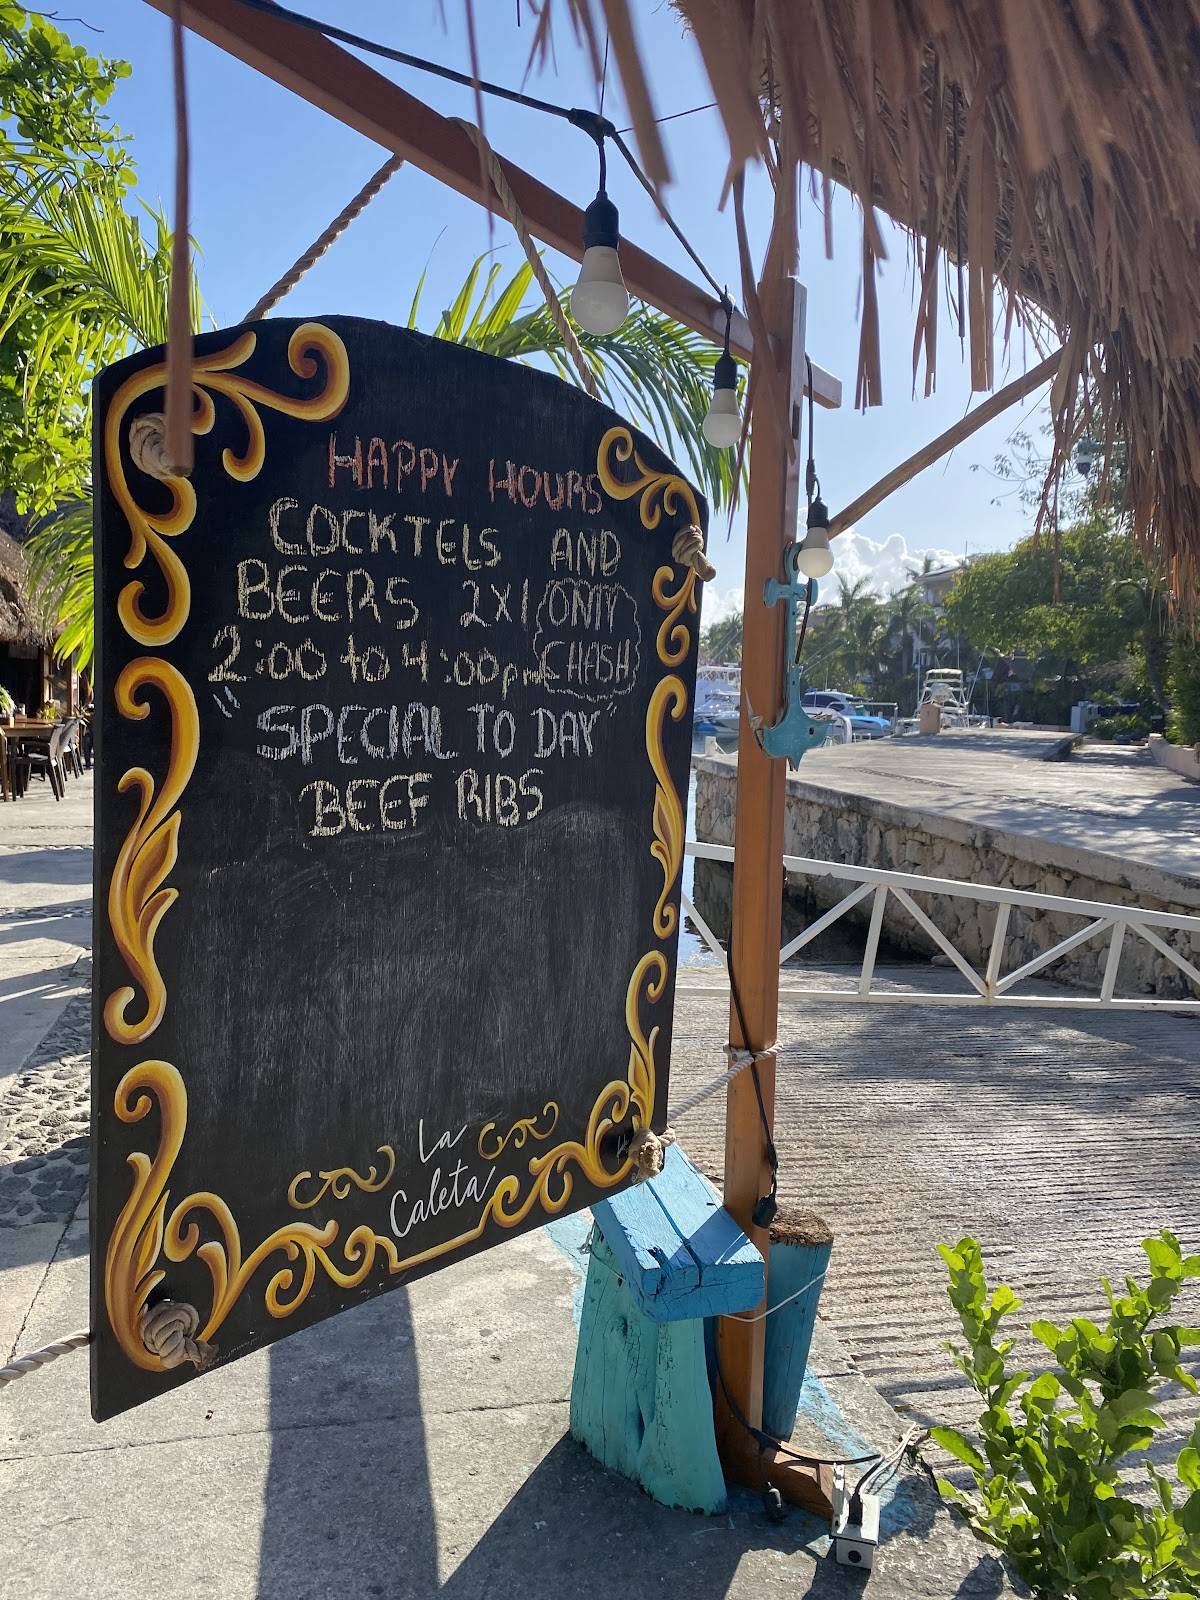 HAPPY HOURS
COCKTELS AND
BEERS 2X1 ONLY
2:00 to 4:00pm CHASH
"SPECIAL TO DAY"
BEEF RIBS
La
Caleta